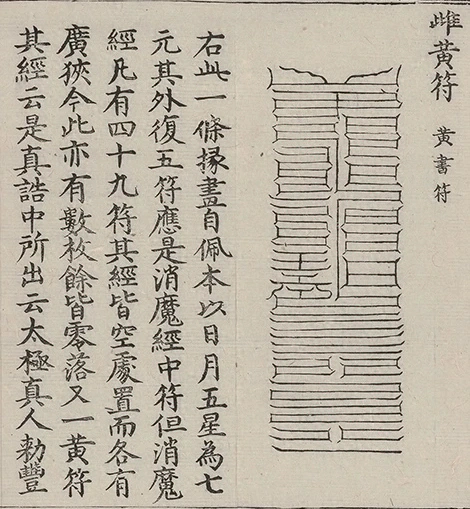 雌黄符 黄書符
右此一條掾畫自佩本以日月五星為七
元其外復五符應是消魔經中符但消魔
經凡有四十九符其經皆空處置而各有
廣狹今此亦有數枚餘皆零落又一黄符
其經云是真誥中所出云太極真人勑豐